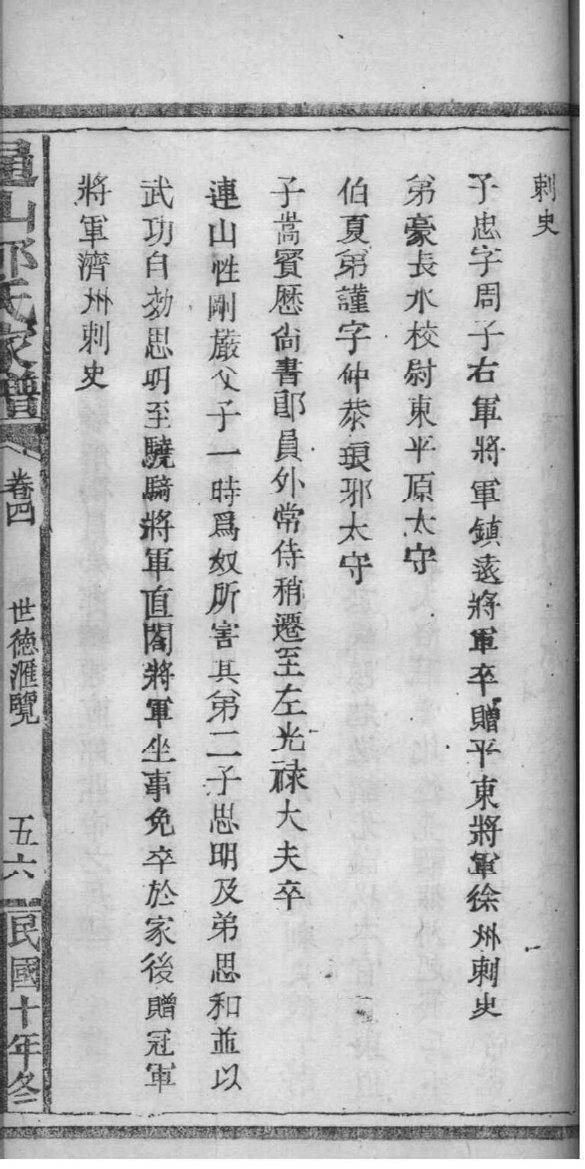 刺史
子忠字周子右軍將軍鎮遠將軍卒贈平東將軍徐州刺史
弟豪長水校尉東平原太守
伯夏弟謹字仲恭琅邪太守
子嵩賓歷尙書郎員外常侍稍遷至左光祿大夫卒
連山性剛嚴父子一時爲奴所害其弟二子思明及弟思和並以
武功自効思明至驍騎將軍直閣將軍坐事免卒於家後贈冠軍
將軍濟州刺史
山氏家譜
卷四
世德滙覽
五六
民國十年冬